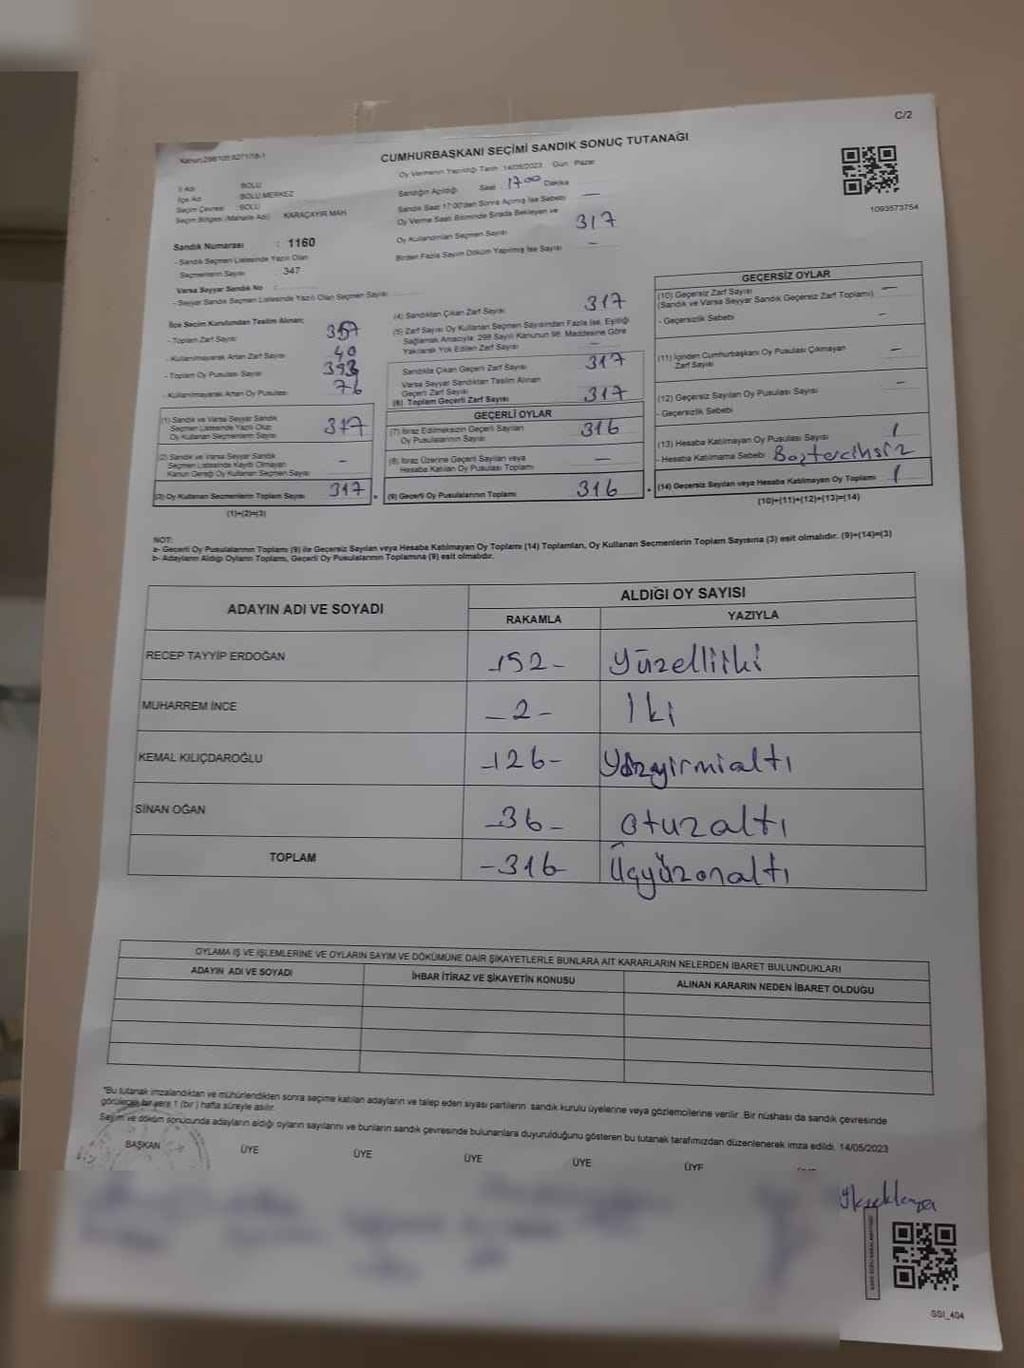 C/2
CUMHURBAŞKANI SEÇİMİ SANDIK SONUÇ TUTANAĞI
Oy Vermenin Yapıldığı Tarih :14/05/2023 Gün : Pazar
İl Adı : BOLU
İlçe Adı : BOLU MERKEZ
Seçim Çevresi : BOLU
Seçim Bölgesi (Mahalle Adı) KARAÇAYIR MAH
Sandık Numarası : 1160
- Sandık Seçmen Listesinde Yazılı Olan
Seçmenlerin Sayısı 347
Varsa Seyyar Sandık No :
- Seyyar Sandık Seçmen Listesinde Yazılı Olan Seçmen Sayısı
Sandığın Açıldığı Saat : 17:00 Dakika
Sandık Saat 17:00'dan Sonra Açılmış İse Sebebi —
Oy Verme Saati Bitiminde Sırada Bekleyen ve
Oy Kullandırılan Seçmen Sayısı 317
Birden Fazla Sayım Döküm Yapılmış İse Sayısı —
1093573754
İlçe Seçim Kurulundan Teslim Alınan;
- Toplam Zarf Sayısı 357
- Kullanılmayarak Artan Zarf Sayısı 40
- Toplam Oy Pusulası Sayısı 393
- Kullanılmayarak Artan Oy Pusulası 76
(1) Sandık ve Varsa Seyyar Sandık
Seçmen Listesinde Yazılı Olup
Oy Kullanan Seçmenlerin Sayısı 317
(2) Sandık ve Varsa Seyyar Sandık
Seçmen Listesinde Kayıtlı Olmayan
Kanun Gereği Oy Kullanan Seçmen Sayısı –
(3) Oy Kullanan Seçmenlerin Toplam Sayısı 317
(1)+(2)=(3)
(4) Sandıktan Çıkan Zarf Sayısı 317
(5) Zarf Sayısı Oy Kullanan Seçmen Sayısından Fazla İse, Eşitliği
Sağlamak Amacıyla, 298 Sayılı Kanunun 98. Maddesine Göre
Yakılarak Yok Edilen Zarf Sayısı —
Sandıkta Çıkan Geçerli Zarf Sayısı 317
Varsa Seyyar Sandıktan Teslim Alınan
Geçerli Zarf Sayısı
(6) Toplam Geçerli Zarf Sayısı 317
GEÇERLİ OYLAR
(7) İtiraz Edilmeksizin Geçerli Sayılan
Oy Pusulasının Sayısı 316
(8) İtiraz Üzerine Geçerli Sayılan veya
Hesaba Katılan Oy Pusulası Toplamı —
(9) Geçerli Oy Pusulalarının Toplamı 316
GEÇERSİZ OYLAR
(10) Geçersiz Zarf Sayısı —
(Sandık ve Varsa Seyyar Sandık Geçersiz Zarf Toplamı)
- Geçersizlik Sebebi —
(11) İçinden Cumhurbaşkanı Oy Pusulası Çıkmayan
Zarf Sayısı –
(12) Geçersiz Sayılan Oy Pusulası Sayısı —
- Geçersizlik Sebebi
(13) Hesaba Katılmayan Oy Pusulası Sayısı 1
- Hesaba Katılmama Sebebi Boş tercihsiz
(14) Geçersiz Sayılan veya Hesaba Katılmayan Oy Toplamı 1
(10)+(11)+(12)+(13)=(14)
NOT:
a- Geçerli Oy Pusulalarının Toplamı (9) ile Geçersiz Sayılan veya Hesaba Katılmayan Oy Toplamı (14) Toplamları, Oy Kullanan Seçmenlerin Toplam Sayısına (3) eşit olmalıdır. (9)+(14)=(3)
b- Adayların Aldığı Oyların Toplamı, Geçerli Oy Pusulalarının Toplamına (9) eşit olmalıdır.
ADAYIN ADI VE SOYADI
ALDIĞI OY SAYISI
RAKAMLA YAZIYLA
RECEP TAYYİP ERDOĞAN -152- Yüzelliiki
MUHARREM İNCE -2- İki
KEMAL KILIÇDAROĞLU -126- Yüzyirmialtı
SİNAN OĞAN -36- Otuzaltı
TOPLAM -316- Üçyüzonaltı
OYLAMA İŞ VE İŞLEMLERİNE VE OYLARIN SAYIM VE DÖKÜMÜNE DAİR ŞİKAYETLERLE BUNLARA AİT KARARLARIN NELERDEN İBARET BULUNDUKLARI
ADAYIN ADI VE SOYADI İHBAR İTİRAZ VE ŞİKAYETİN KONUSU ALINAN KARARIN NEDEN İBARET OLDUĞU
"Bu tutanak imzalandıktan ve mühürlendikten sonra seçime katılan adayların ve talep eden siyasi partilerin sandık kurulu üyelerine veya gözlemcilerine verilir. Bir nüshası da sandık çevresinde
görülecek bir yere 1 (bir) hafta süreyle asılır.
Seçim ve döküm sonucunda adayların aldığı oyların sayılarını ve bunların sandık çevresinde bulunanlara duyurulduğunu gösteren bu tutanak tarafımızdan düzenlenerek imza edildi. 14/05/2023
BAŞKAN ÜYE ÜYE ÜYE ÜYE ÜYE
SSI_404